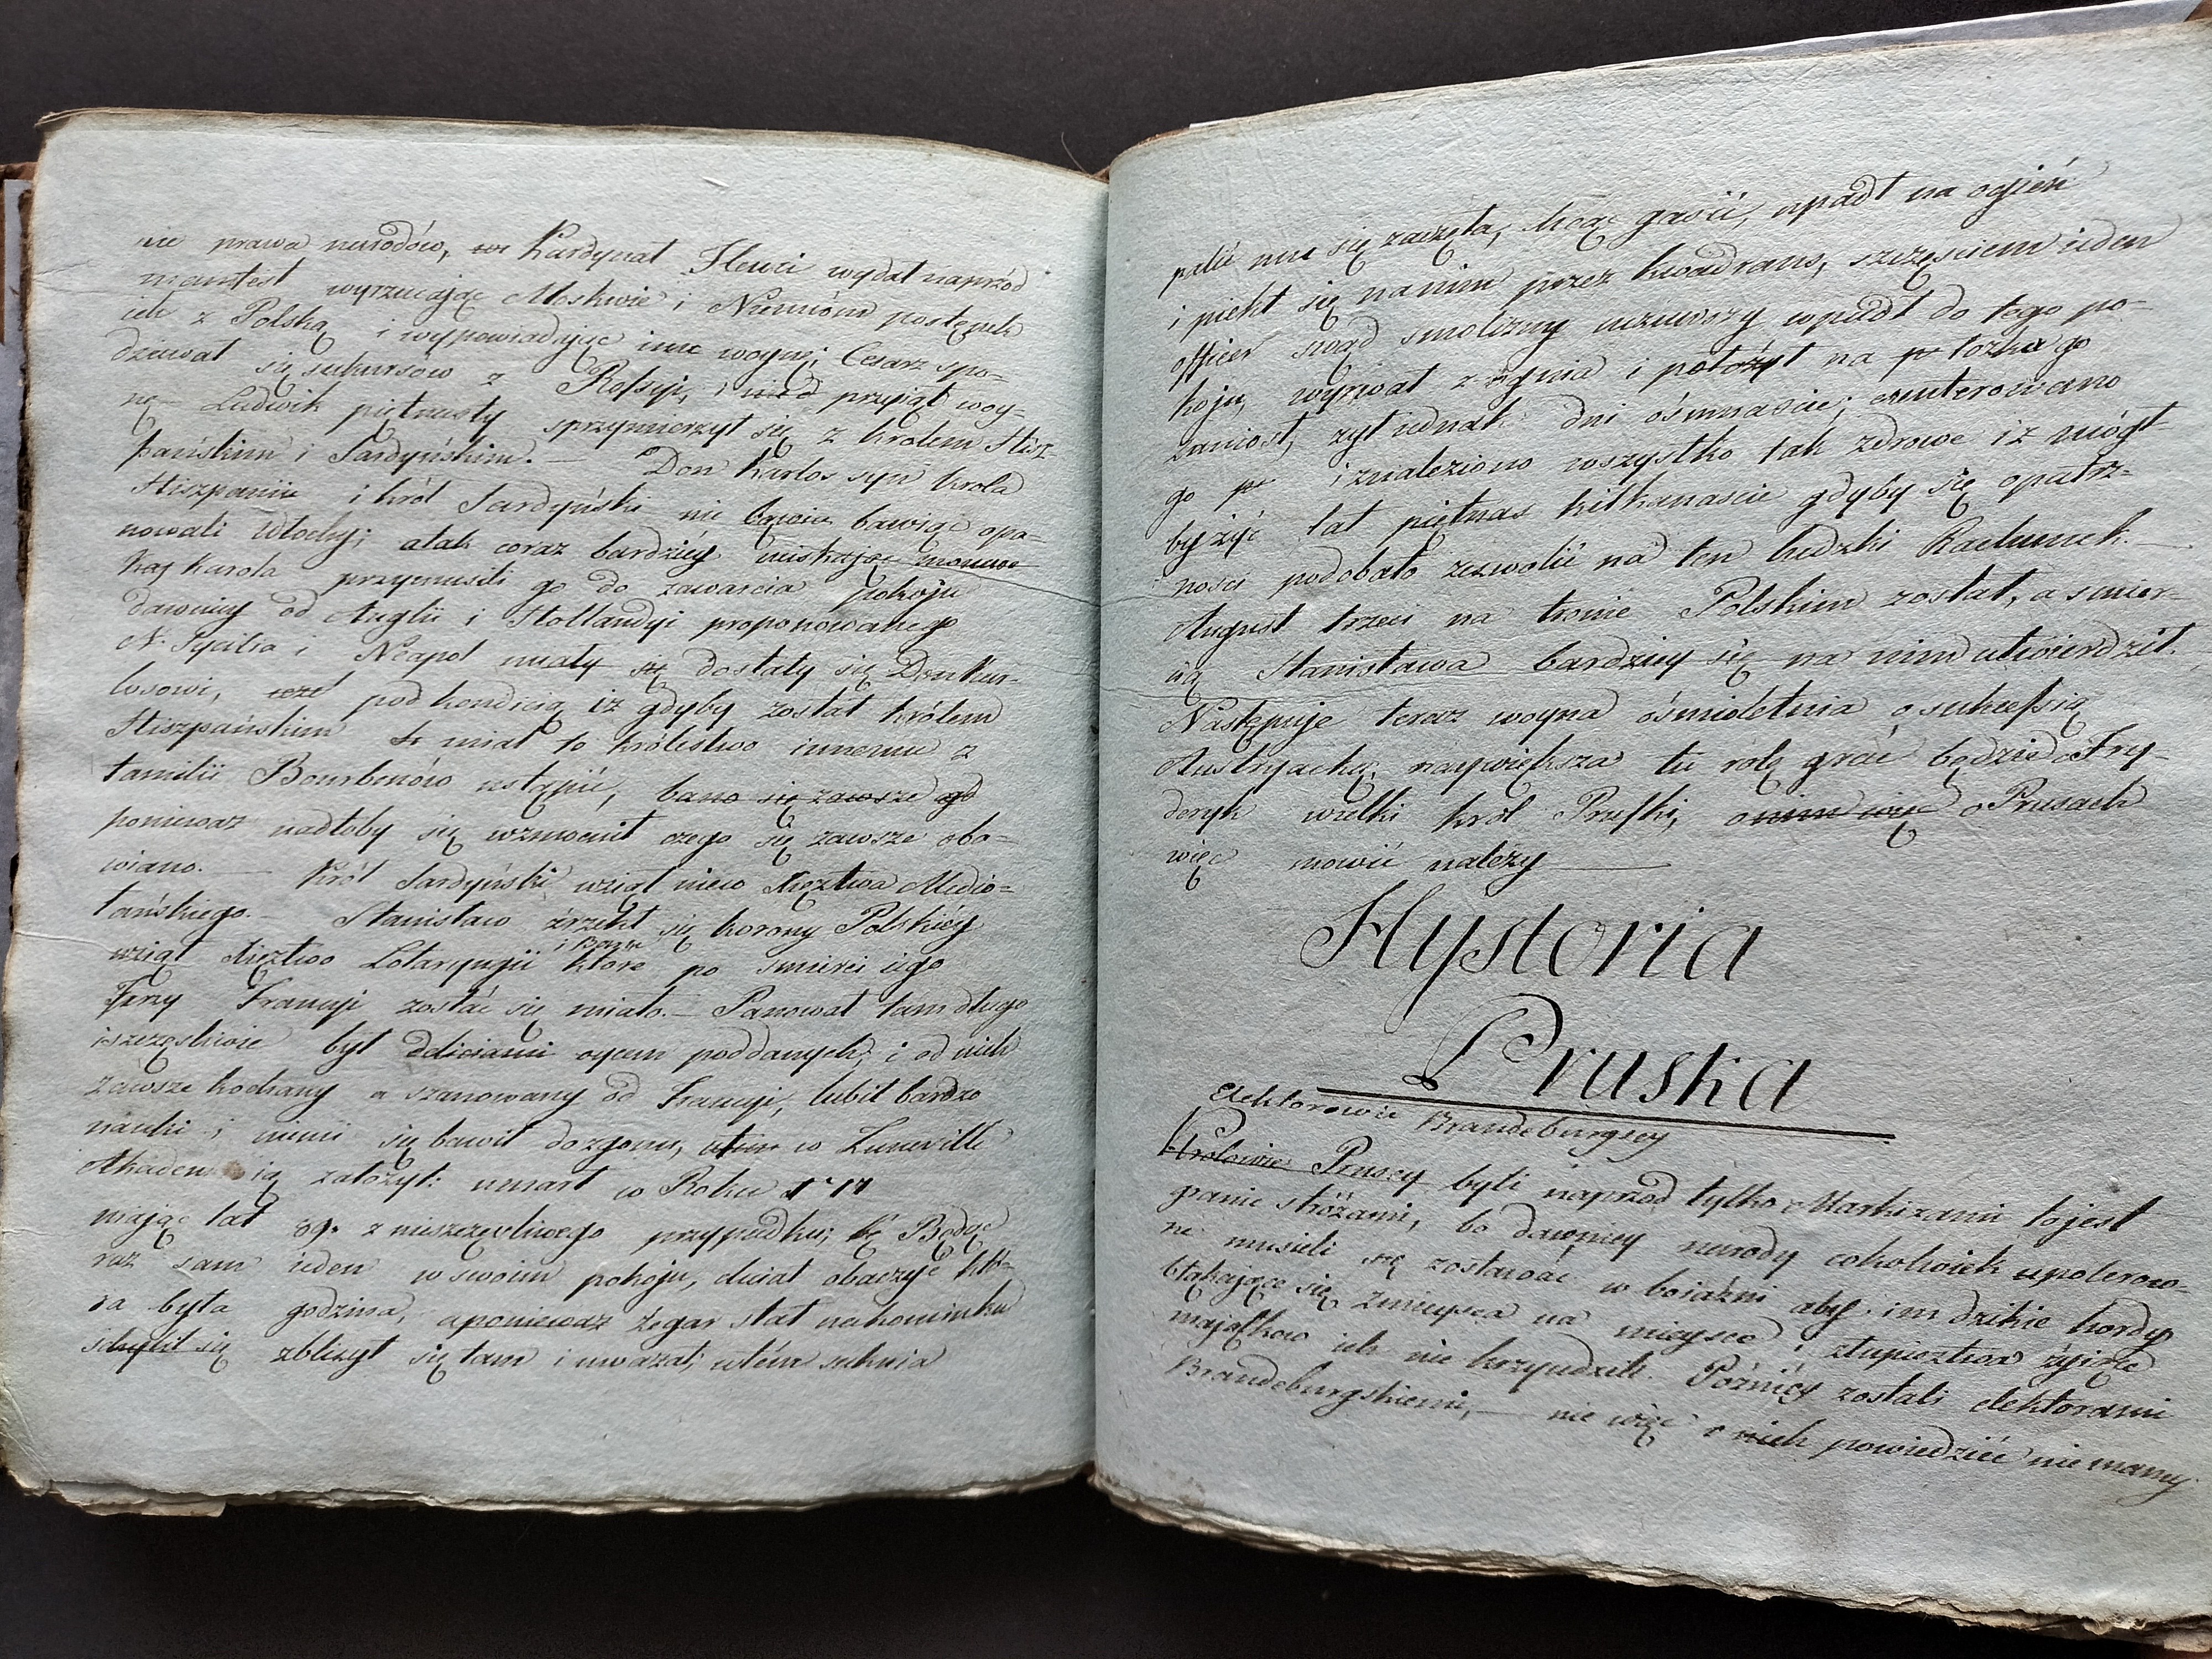 nie prawa narodów, Kardynał Fleuri wydał naprzód
manifest wyrzucając Moskwie i Niemcóm postępek
ich z Polską i wypowiadając im woynę; Cesarz spo-
dziewał się sukursów z Rossyi, i przyjął woy-
nę Ludwik piętnasty sprzymierzył się z królem Hisz-
pańskim i Sardyńskim. — Don Karlos syn króla
Hiszpanii i król Sardyński nie bawiąc opa-
nowali Włochy; a tak coraz bardziéy
Karola przymusili go do zawarcia pokoju
dawniey od Anglii i Hollandyi proponowanego
Sycilia i Neapol miały się dostały się Donkar-
losowi, pod kondicią iż gdyby został królem
Hiszpańskim miał to królestwo innemu z
familii Bourbonów ustąpić, bano się zawsze
ponieważ nadtoby się wzmocnił czego się zawsze oba-
wiano. — Król Sardyński wziął nieco Xięztwa Medio-
lańskiego. — Stanisław zrzekł się korony Polskiéy
wziął Xięztwo Lotaryngii i Barru które po smierci iego
przy Francyi zostać się miało. — Panował tam długo
i szczęśliwie był deliciami oycem poddanych; i od nich
zawsze kochany a szanowany od Francyi, lubił bardzo
nauki i niemi się bawił do zgonu, w Luneville
Akademią założył: umarł w Roku
maiąc lat 89. z nieszczęsliwego przypadku; Będąc
raz sam ieden w swoim pokoju, chciał obaczyć któ-
ra była godzina, a ponieważ zegar stał na kominku
schylił się zbliżył się tam i uważał; wtém suknia
palić mu się zaczęła, chcąc gasić, upadł na ogień
i piekł się na nim przez kwadrans, szczęściem ieden
officer swąd smolizny uczuwszy wpadł do tego po-
koju, wyrwał z ognia i położył na łożko go
zaniosł, zył iednak dni ośmnascie;
go i znaleziono wszystko tak zdrowe iz mógł
by żyć lat piętnas kilkanascie gdyby się opatrz-
ności podobało zezwolić na ten ludzki Rachunek. —
August trzeci na tronie Polskim został, a smier-
cią Stanisława bardziey się na nim utwierdził.
Następuje teraz woyna ośmioletnia o sukcessią
Austryacką; naywiększa tu rolę grać będzie Fry-
deryk wielki król Pruski, o nim więc o Prusach
więc mowić należy —
Hystoria
Pruska
Elektorowie Brandeburgscy
Królowie Pruscy byli naprzód tylko Markizami to jest
granic stróżami, bo dawniey narody cokolwiek upolerow-
ne musieli się zostawać w boiaźni aby im dzikie hordy
błąkające się z mieysca na mieysce i z łupieztwa żyiące
majątkow ich nie krzywdzili. Poźniéy zostali elektorami
Brandeburgskiemi, — nic więc o nich powiedzieć nie mamy